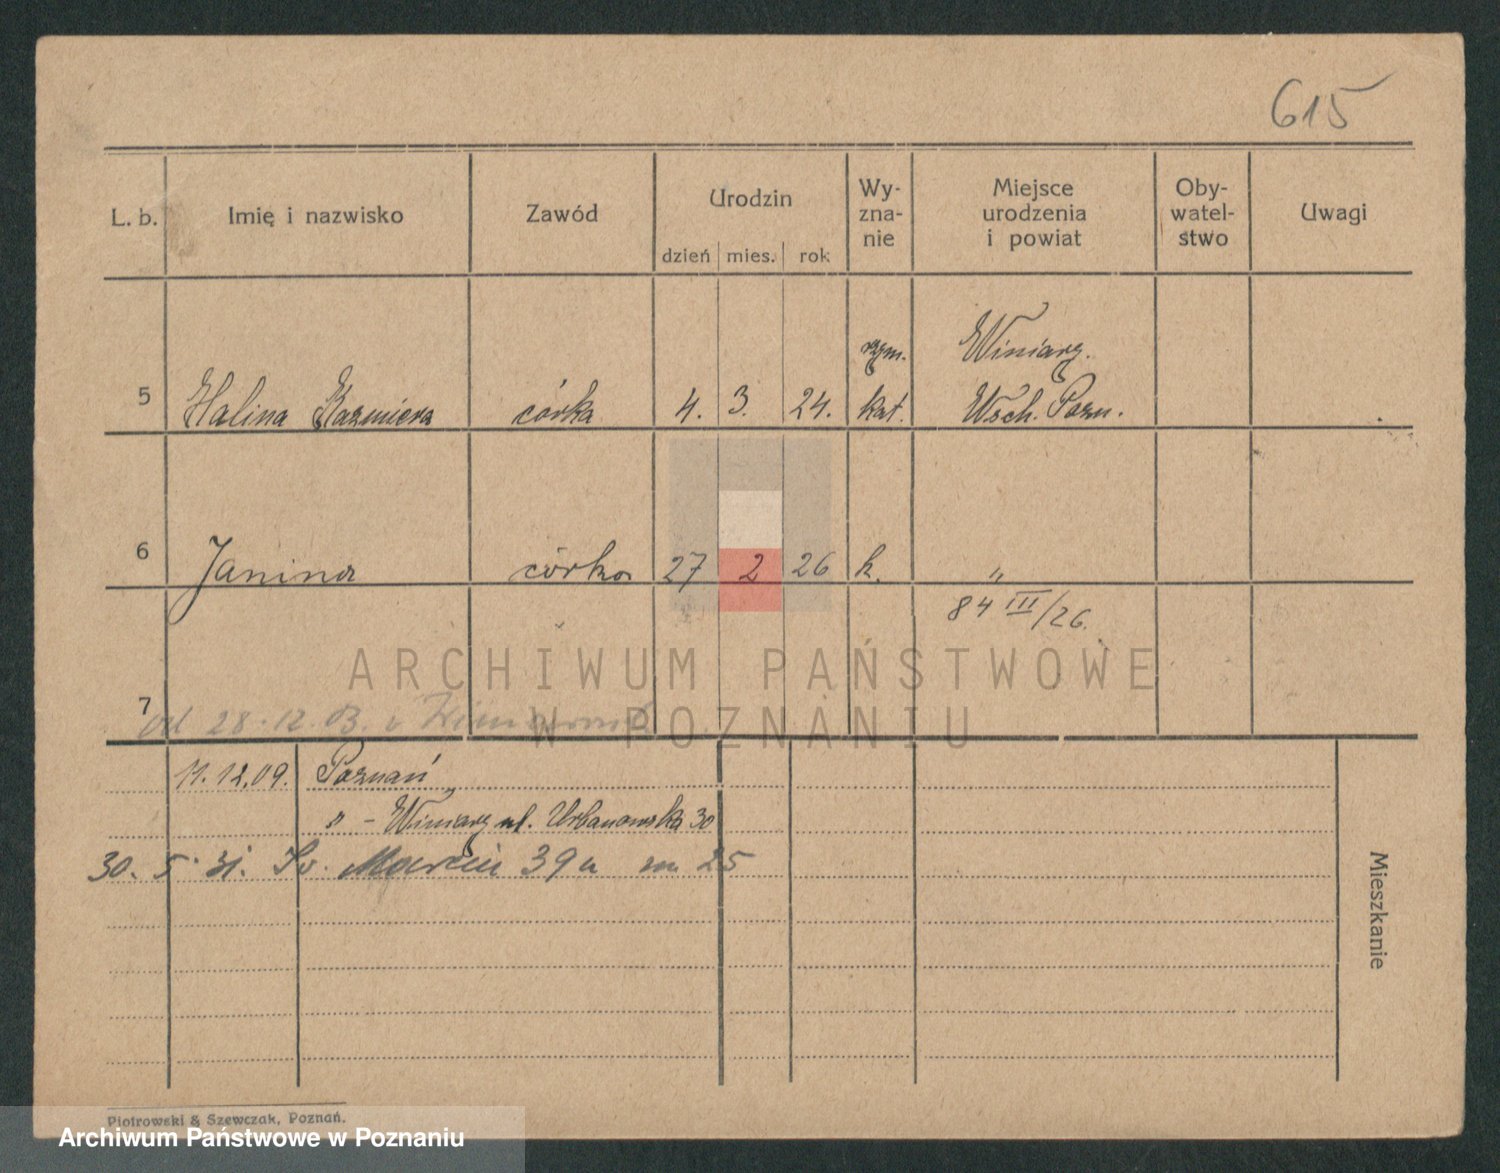 615
L. b. Imię i nazwisko Zawód Urodzin dzień mies. rok Wy-zna-nie Miejsce urodzenia i powiat Oby-watel-stwo Uwagi
rzym. Winiary.
5 Halina Kazmiera córka 4. 3. 24. kat. Wsch. Pozn.
6 Janina córka 27 2 26 k. "
84 III/26.
ARCHIWUM PAŃSTWOWE
W POZNANIU
7
od 28.12.
11.12.09. Poznań
" - Winiary ul. Urbanowska 30
30. 5. 31. Św. Marcin 39a m 25
Mieszkanie
Piotrowski & Szewczak, Poznań.
Archiwum Państwowe w Poznaniu